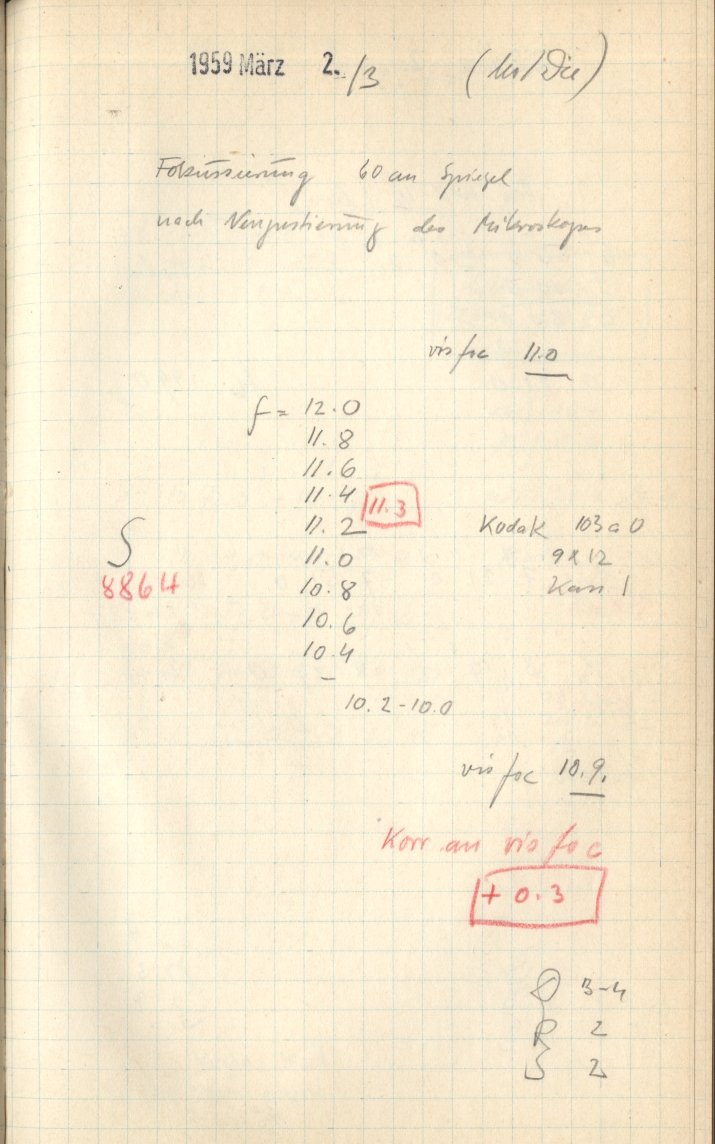 1959 März 2./3
Fokussierung 60 cm Spiegel
nach Neujustierung des Mikroskopes
vis foc 11.0
f = 12.0
11.8
11.6
11.4 11.3
11.2 Kodak 103 a O
S 11.0 9 x 12
8864 10.8 Kass 1
10.6
10.4
–
10.2 - 10.0
vis foc 10.9.
Korr an vis foc
+ 0.3
3-4
R 2
S 2